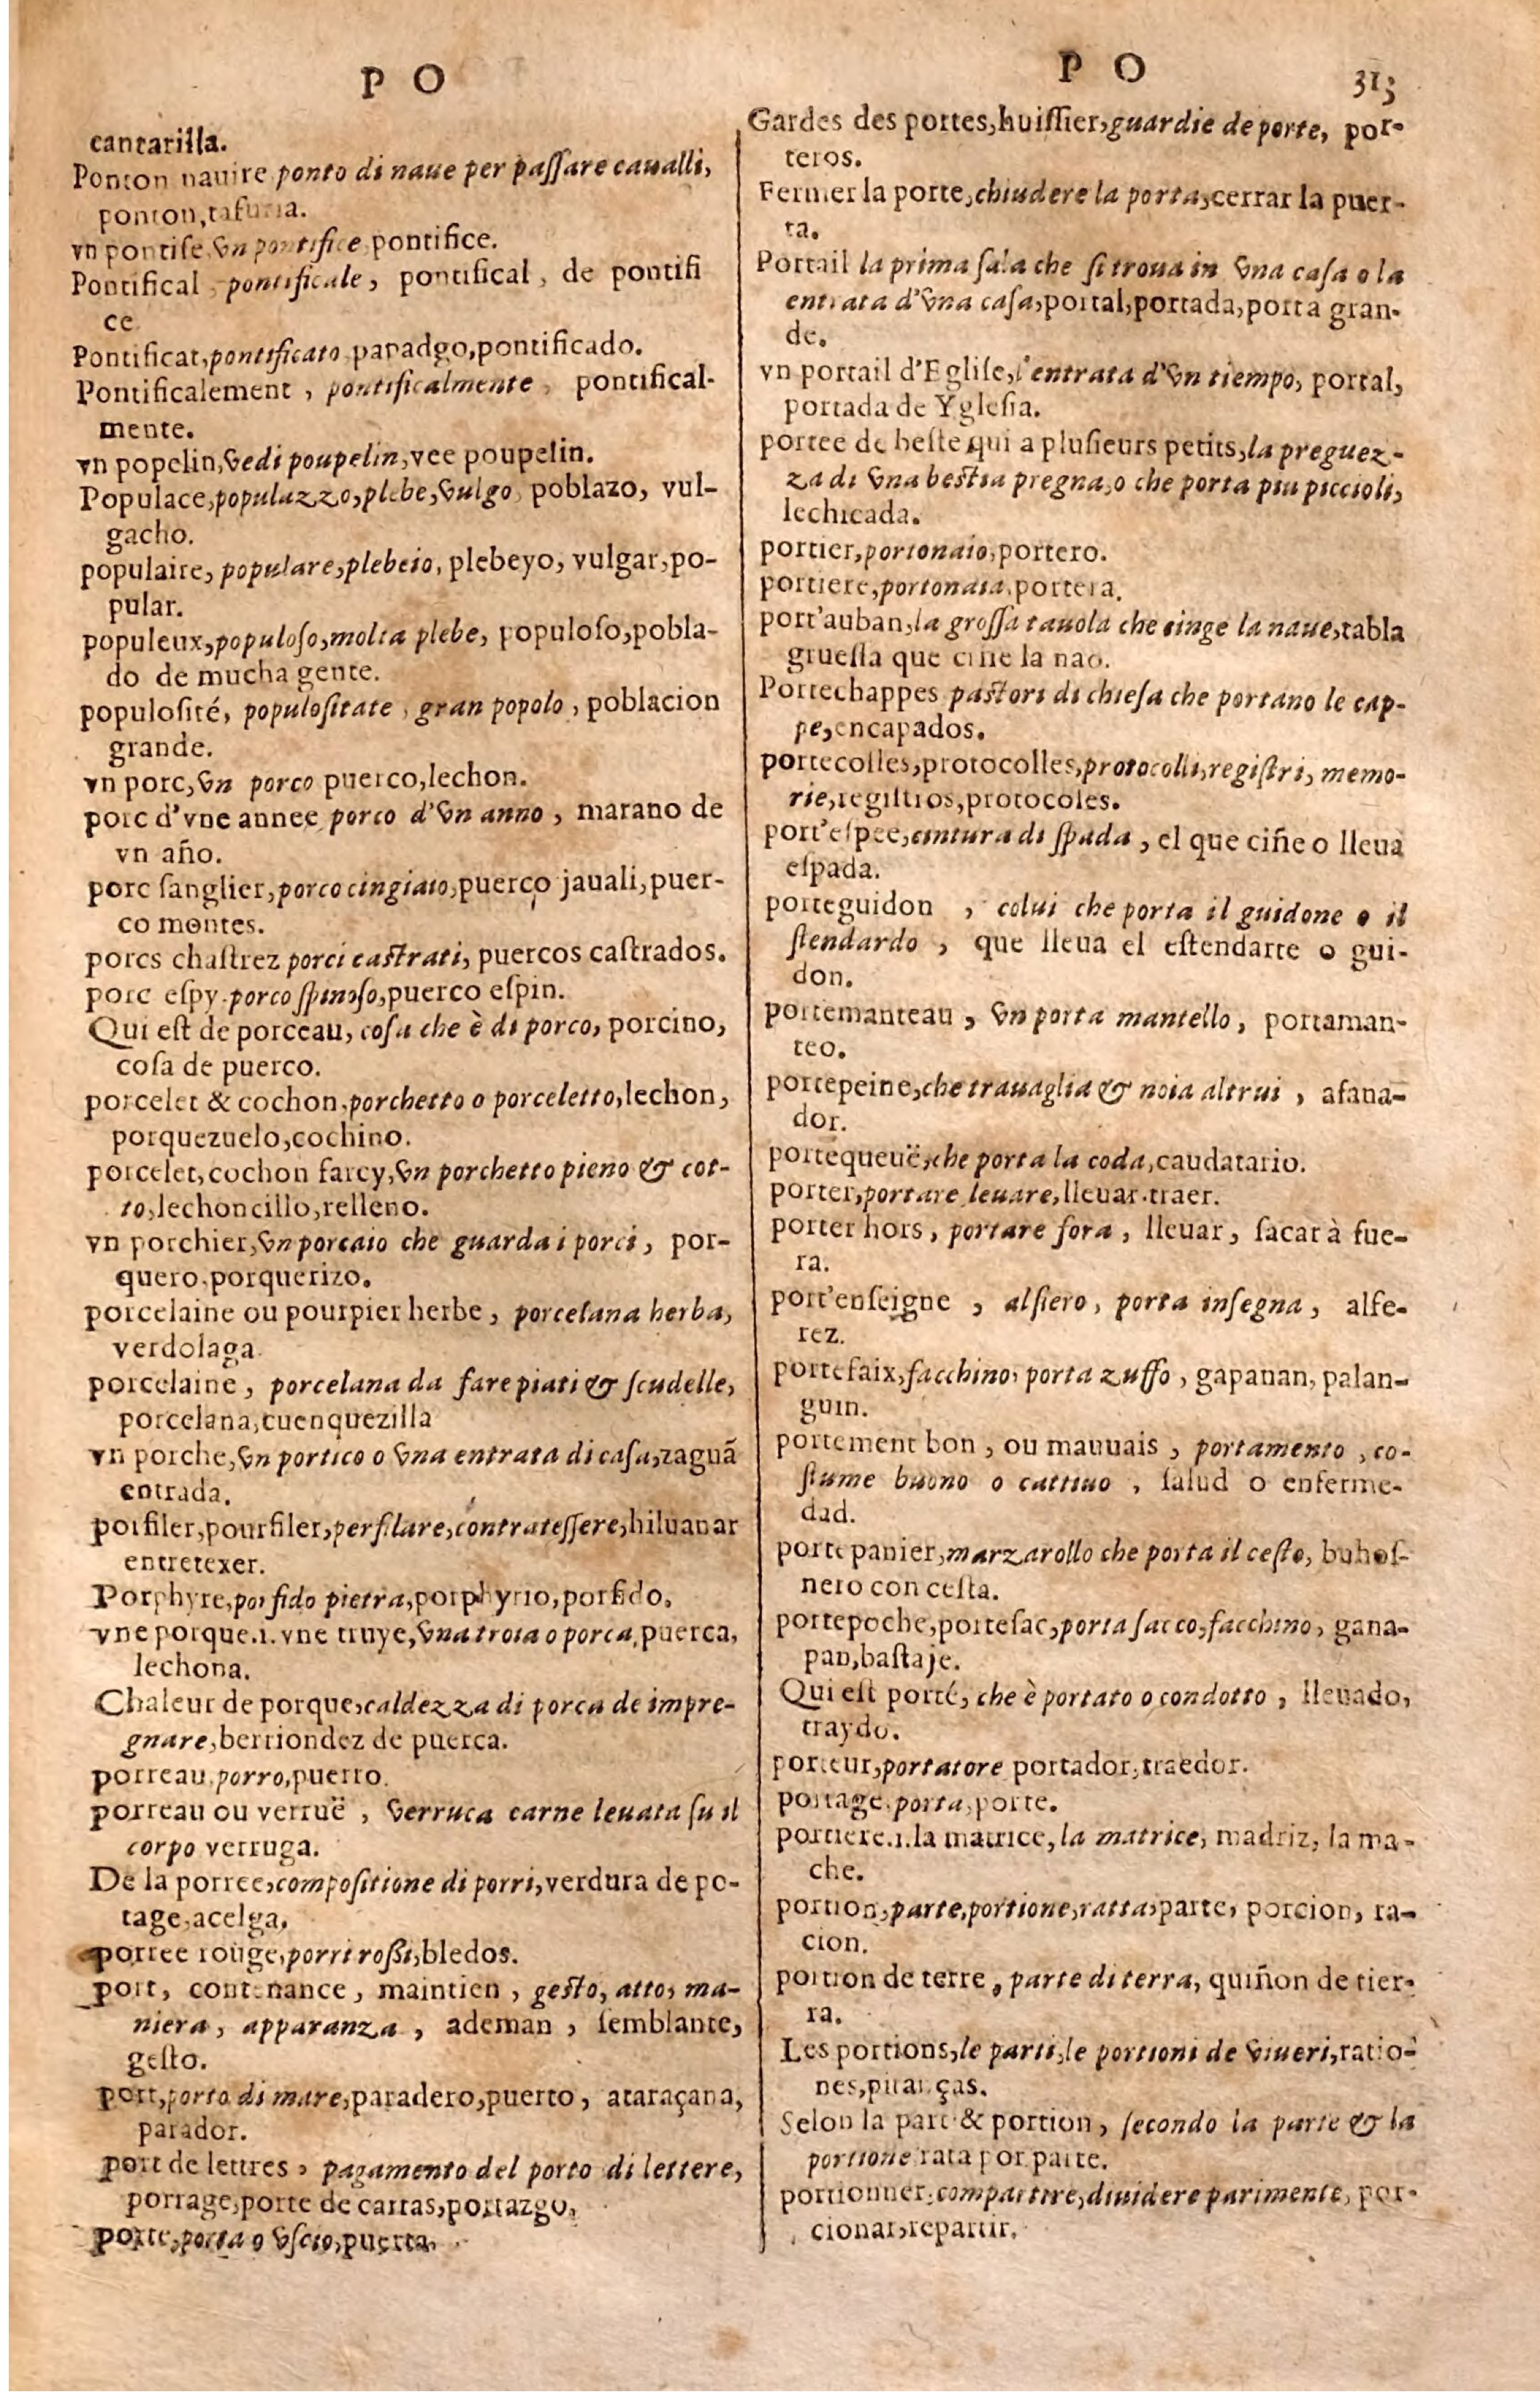 P O
cantarilla.
Ponton nauire ponto di naue per paſſare caualli,
ponton, tafuria.
vn pontife vn pontifice pontifice.
Pontifical, pontificale, pontifical, de pontifi
ce
Pontificat, pontificato papadgo, pontificado.
Pontificalement, pontificalmente, pontifical-
mente.
vn popelin, vedi poupelin, vee poupelin.
Populace, populazzo, plebe, vulgo, poblazo, vul-
gacho.
populaire, populare, plebeio, plebeyo, vulgar, po-
pular.
populeux, populoſo, molta plebe, populoſo, pobla-
do de mucha gente.
populoſité, populoſitate, gran popolo, poblacion
grande.
vn porc, vn porco puerco, lechon.
porc d'vne annee porco d'vn anno, marano de
vn año.
porc ſanglier, porco cingiato, puerco jauali, puer-
co montes.
porcs chaſtrez porci caſtrati, puercos caſtrados.
porc eſpy. porco ſpinoſo, puerco eſpin.
Qui est de porceau, coſa che è di porco, porcino,
coſa de puerco.
porcelet & cochon, porchetto o porceletto, lechon,
porquezuelo, cochino.
porcelet, cochon farcy, vn porchetto pieno & cot-
to, lechoncillo, relleno.
vn porchier, vn porcaio che guarda i porci, por-
quero, porquerizo.
porcelaine ou pourpier herbe, porcelana herba,
verdolaga.
porcelaine, porcelana da fare piati & ſcudelle,
porcelana, cuenquezilla
vn porche, vn portico o vna entrata di caſa, zaguã
entrada.
porfiler, pourfiler, perfilare, contrateſſere, hiluanar
entretexer.
Porphyre, porfido pietra, porphyrio, porfido.
vne porque.i. vne truye, vna troia o porca, puerca,
lechona.
Chaleur de porque, caldezza di porca de impre-
gnare, berriondez de puerca.
porreau, porro, puerro.
porreau ou verruë, verruca carne leuata ſu il
corpo verruga.
De la porree, compoſitione di porri, verdura de po-
tage, acelga.
porree rouge, porri roßi, bledos.
port, contenance, maintien, geſto, atto, ma-
niera, apparanza, ademan, ſemblante,
geſto.
port, porto di mare, paradero, puerto, ataraçana,
parador.
port de lettres, pagamento del porto di lettere,
porrage, porte de cartas, portazgo,
porte, porta o vſcio, puerta,
P O 313
Gardes des portes, huiſſier, guardie de porte, por-
teros.
Fermer la porte, chiudere la porta, cerrar la puer-
ta.
Portail la prima ſala che ſi troua in vna caſa o la
entrata d'vna caſa, portal, portada, porta gran-
de.
vn portail d'Egliſe, l'entrata d'vn tiempo, portal,
portada de Ygleſia.
portee de beſte qui a pluſieurs petits, la preguez-
za di vna beſtia pregna, o che porta piu piccioli,
lechicada.
portier, portonaio, portero.
portiere, portonaia, portera.
port'auban, la groſſa tauola che cinge la naue, tabla
grueſſa que ciñe la nao.
Portechappes paſtori di chieſa che portano le cap-
pe, encapados.
portecolles, protocolles, protocolli, regiſtri, memo-
rie, regiſtros, protocoles.
port'eſpee, cintura di ſpada, el que ciñe o lleua
eſpada.
porteguidon, colui che porta il guidone o il
ſtendardo, que lleua el eſtendarte o gui-
don.
portemanteau, vn porta mantello, portaman-
teo.
portepeine, che trauaglia & noia altrui, afana-
dor.
portequeuë, che porta la coda, caudatario.
porter, portare leuare, lleuar, traer.
porter hors, portare fora, lleuar, ſacar à fue-
ra.
port'enſeigne, alfiero, porta inſegna, alfe-
rez.
portefaix, facchino, porta zuffo, gapanan, palan-
guin.
portement bon, ou mauuais, portamento, co-
ſtume buono o cattiuo, ſalud o enferme-
dad.
porte panier, marzarollo che porta il ceſto, buhoſ-
nero con ceſta.
portepoche, porteſac, porta ſacco, facchino, gana-
pan, baſtaje.
Qui eſt porté, che è portato o condotto, lleuado,
traydo.
porteur, portatore portador, traedor.
portage. porta, porte.
portiere.i. la matrice, la matrice, madriz, la ma-
che.
portion, parte, portione, ratta, parte, porcion, ra-
cion.
portion de terre, parte di terra, quiñon de tier-
ra.
Les portions, le parti, le portioni de viueri, ratio-
nes, pitanças.
Selon la part & portion, ſecondo la parte & la
portione rata por parte.
portionner, compartire, diuidere parimente, por-
cionar, repartir.